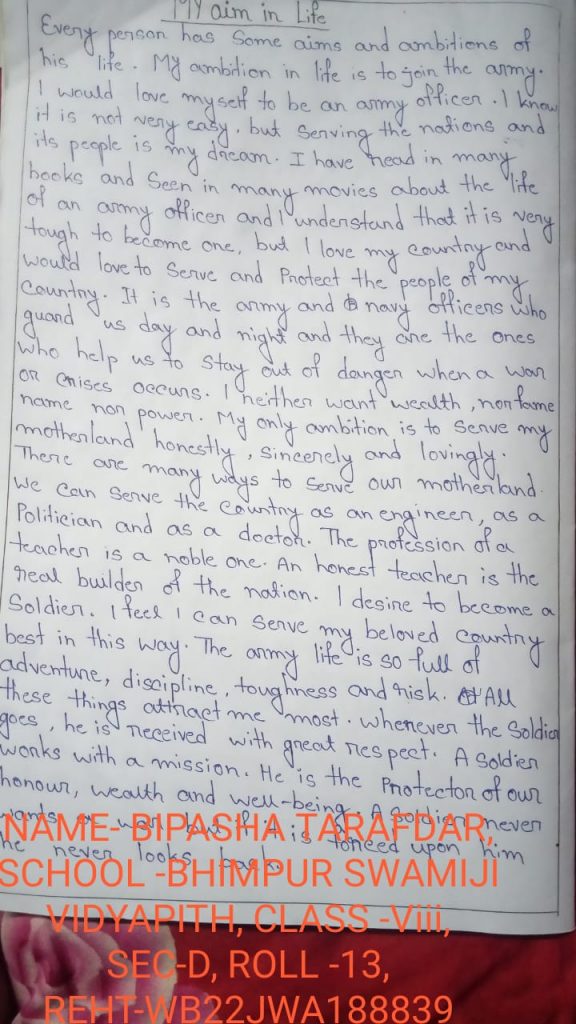 MY aim in Life
Every person has some aims and ambitions of
his life. My ambition in life is to join the army.
I would love myself to be an army officer. I know
it is not very easy, but serving the nations and
its people is my dream. I have read in many
books and seen in many movies about the life
of an army officer and I understand that it is very
tough to become one, but I love my country and
would love to serve and Protect the people of my
country. It is the army and navy officers who
guard us day and night and they are the ones
who help us to stay out of danger when a war
or crises occurs. I neither want wealth, nor fame
name nor power. My only ambition is to serve my
motherland honestly, sincerely and lovingly.
There are many ways to serve our motherland.
We can serve the country as an engineer, as a
Politician and as a doctor. The profession of a
teacher is a noble one. An honest teacher is the
real builder of the nation. I desire to become a
Soldier. I feel I can serve my beloved country
best in this way. The army life is so full of
adventure, discipline, toughness and risk. All
these things attract me most. Whenever the Soldier
goes, he is received with great respect. A Soldier
works with a mission. He is the Protector of our
honour, wealth and well-being. A Soldier never
wants a war but if it is forced upon him
he never looks back.
NAME- BIPASHA TARAFDAR,
SCHOOL -BHIMPUR SWAMIJI
VIDYAPITH, CLASS -Viii,
SEC-D, ROLL -13,
REHT-WB22JWA188839